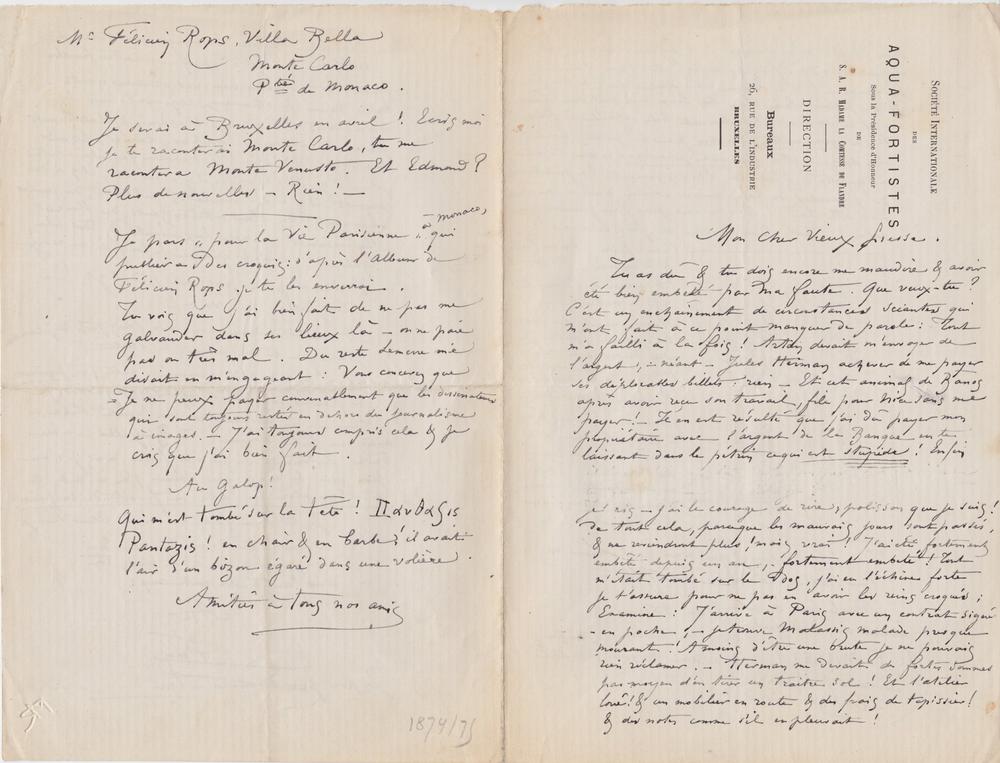 Mr Félicien Rops, Villa Bella
Monte Carlo
Pté de Monaco.
Je serai à Bruxelles en avril ! Ecris moi
je te raconterai Monte Carlo, tu me
raconteras Monte Venusto. Et Edmond ?
Plus de nouvelles – Rien ! –
Je pars « pour la Vie Parisienne » à Monaco, qui
publiera des croquis : d'après l'Album de
Félicien Rops. je te les enverrai.
Tu vois que j'ai bien fait de ne pas me
galvauder dans ses lieux là – on ne paie
pas ou très mal. Du reste m'a
disait en m'engageant : Vous concevez que
Je ne peux payer convenablement que les dessinateurs
qui sont toujours restés en dehors du journalisme
à images. – J'ai toujours compris cela & je
crois que j'ai bien fait.
Au Galop !
Qui m'est tombé sur la Tête ! Πανδαζις
Pantazis ! en chair & en barbe ! il avait
l'air d'un bizon égaré dans une volière.
Amitiés à tous nos amis
1874/75
SOCIÉTÉ INTERNATIONALE
DES
AQUA-FORTISTES
Sous la Présidence d'Honneur
DE
S. A. R. MADAME LA COMTESSE DE FLANDRE
DIRECTION
Bureaux
26, RUE DE L'INDUSTRIE
BRUXELLES
Mon Cher Vieux
Tu as dû & tu dois encore me maudire & avoir
été bien embêté par ma faute. Que veux-tu ?
C'est un enchaînement de circonstances sciantes qui
m'ont fait à ce point manquer de parole : Tout
m'a failli à la fois ! Artan devait m'envoyer de
l'argent, – néant – Jules Herman achever de me payer
ses déplorables billets : rien – Et cet animal de
après avoir reçu son travail, file pour Nice sans me
payer ! – Il en est résulté que j'ai dû payer mon
propriétaire avec l'argent de la Banque en te
laissant dans le pétrin ce qui est stupide ! Enfin
je ris – j'ai le courage de rire, polisson que je suis !
de tout cela, parceque les mauvais jours sont passés,
& ne reviendront plus ! mais vrai ! J'ai été fortement
embêté depuis un an, – fortement embêté ! Tout
m'était tombé sur le dos, j'ai eu l'échine forte
je t'assure pour ne pas en avoir les reins croqués ;
Examine : J'arrive à Paris avec un contrat signé
– en poche, – je trouve Malassis malade presque
mourant ! A moins d'être une brute je ne pouvais
rien réclamer. – Herman me devait de fortes sommes
pas moyen d'en tirer un traître sol ! Et l'atelier
loué ! & un mobilier en route & des frais de tapissier !
& des notes comme s'il en pleuvait !